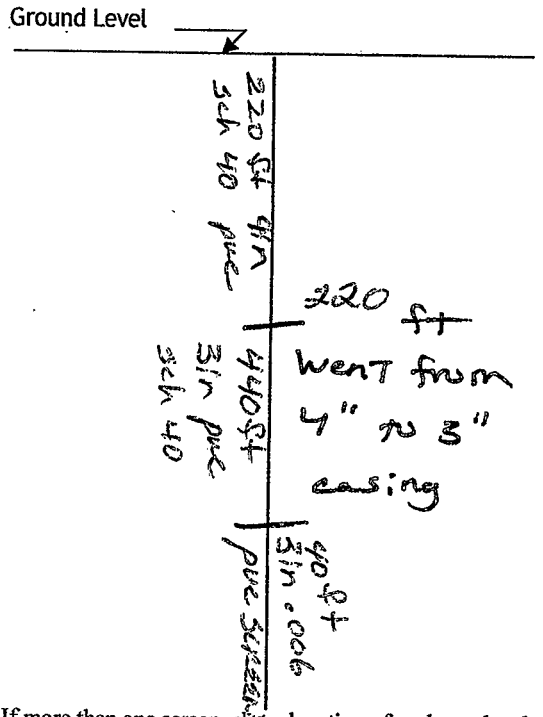 Ground Level
220 ft 4in
sch 40 pvc
220 ft
went from
4" to 3"
casing
440 ft
3in pvc
sch 40
40 ft
3in .006
pvc screen
If more than one screen